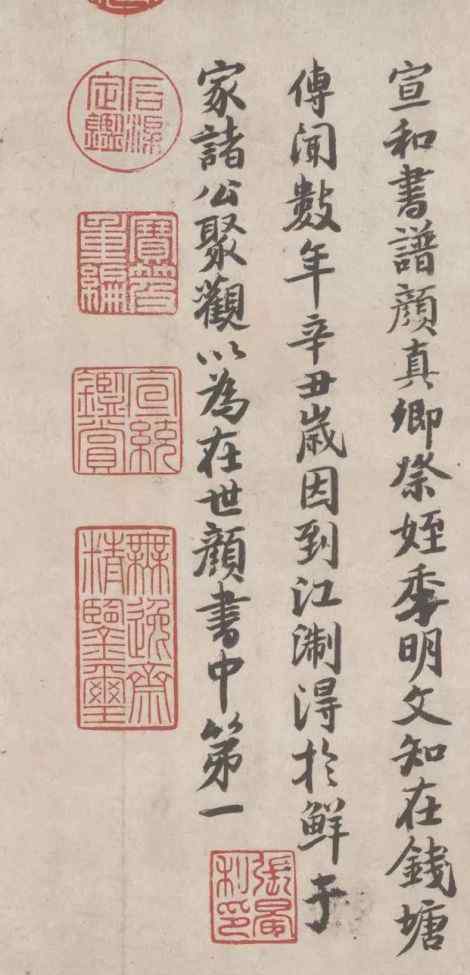 宣和書譜顏真卿祭姪季明文知在錢塘
傳聞數年辛丑歲因到江淛得於鮮于
家諸公聚觀以為在世顏書中第一
張晏私印
石渠定鑑
寶笈重編
宣統鑑賞
無逸齋精鑒璽